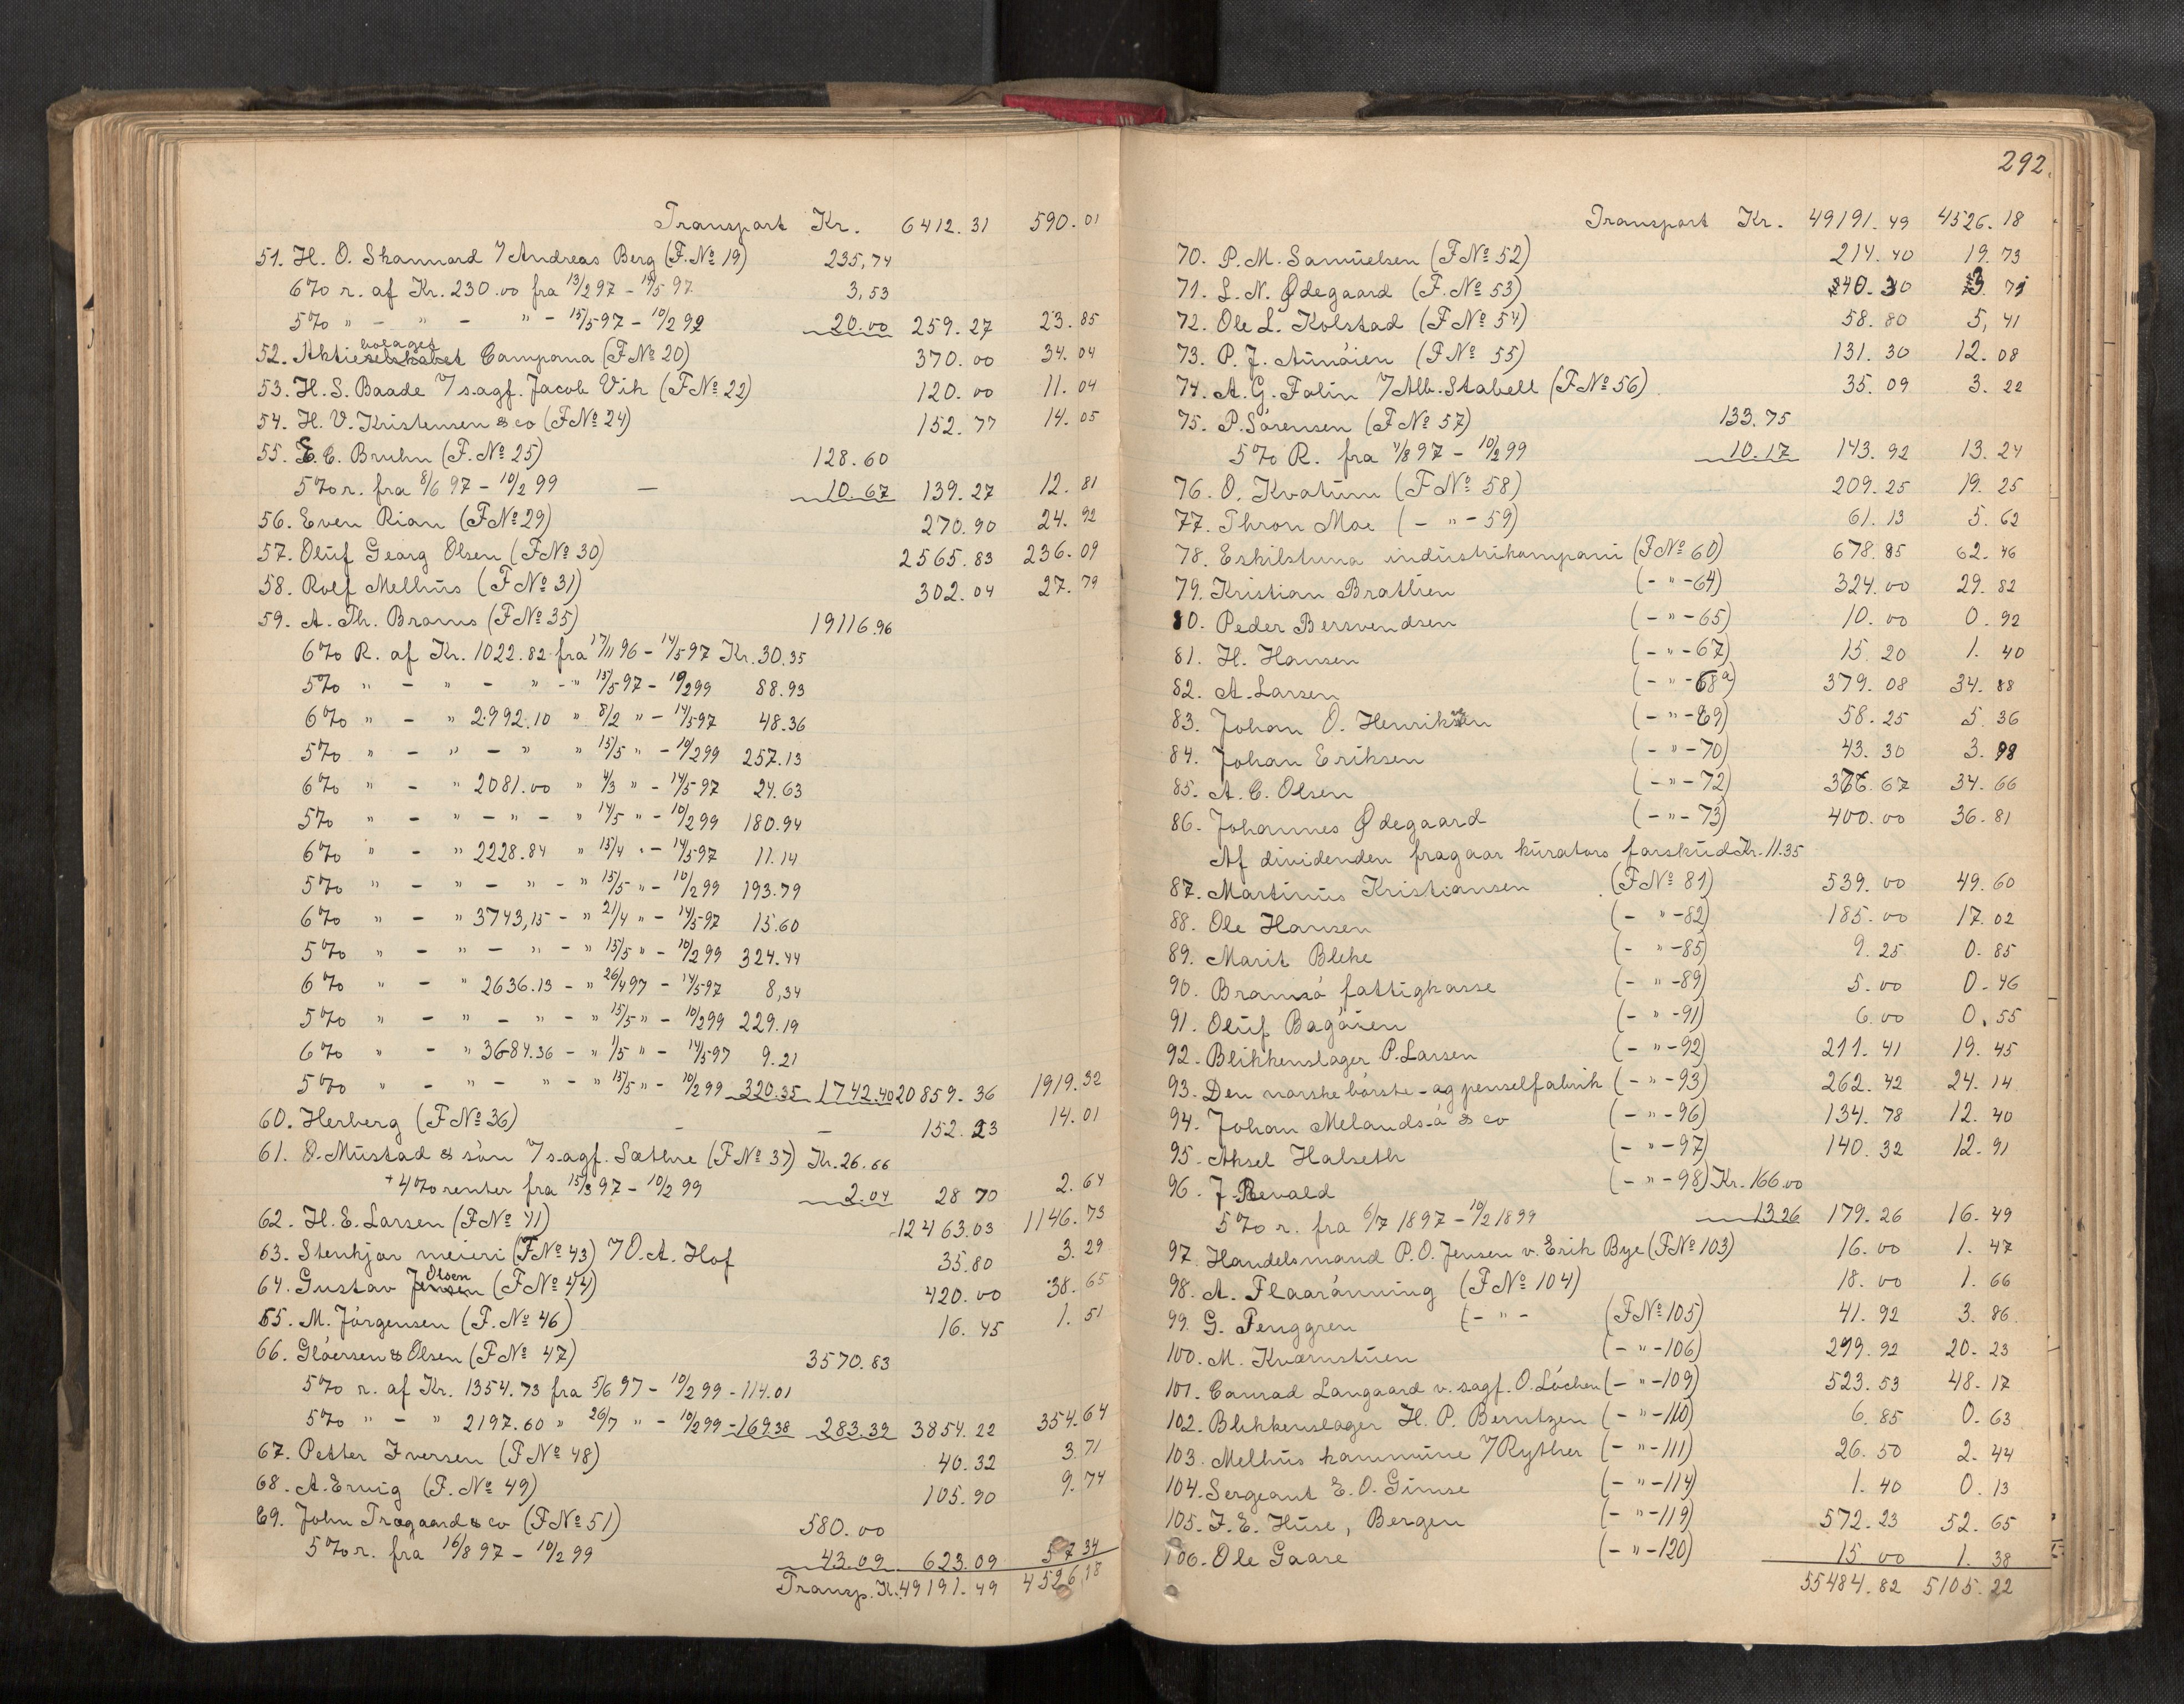 Transport Kr. 6412.31 590.01
51. H. O. Skannard 7/Andreas Berg (F. No 19) 235,74
6% r. af Kr. 230.00 fra 13/2 97 - 14/5 97 3,53
5% " - " - " - 15/5 97 - 10/2 99 20.00 259.27 23.85
bolaget
52. Aktieselskabet Campana (F No 20) 370.00 34.04
53. H. S. Baade 7/ sagf. Jacob Vik (F No 22) 120.00 11.04
54. H. V. Kristensen & co (F No 24) 152.77 14.05
55. E. C. Bruhn (F. No 25) 128.60
5% r. fra 8/6 97 - 10/2 99 — 10.67 139.27 12.81
56. Even Rian (F No 29) 270.90 24.92
57. Oluf Georg Olsen (F No 30) 2565.83 236.09
58. Rolf Melhus (F No 31) 302.04 27.79
59. A. Th. Brams (F No 35) 19116.96
6% R. af Kr. 1022.82 fra 17/11 96 - 14/5 97 Kr. 30.35
5% " - " - " - " 15/5 97 - 10/2 99 88.93
6% " - " 2992.10 " 8/2 " - 14/5 97 48.36
5% " - " - " " 15/5 " - 10/2 99 257.13
6% " - " 2081.00 " 4/3 " - 14/5 97 24.63
5% " - " - " - " 14/5 " - 10/2 99 180.94
6% " - " 2228.84 " 15/4 " - 14/5 97 11.14
5% " - " - " - " 15/5 " - 10/2 99 193.79
6% " - " 3743,15 - " 21/4 " - 14/5 97 15.60
5% " - " - " - " 15/5 " - 10/2 99 324.44
6% " - " 2636.13 - " 26/4 97 - 14/5 97 8,34
5% " - " - " - " 15/5 " - 10/2 99 229.19
6% " - " 3684.36 - " 1/5 " - 14/5 97 9.21
5% " - " - " - " 15/5 " - 10/2 99 320.35 1742.40 20859.36 1919.32
60. Herberg (F No 36) - - 152.23 14.01
61. O. Mustad & søn 7/ sagf. Sæthre (F No 37) Kr. 26.66
+ 4% renter fra 15/3 97 - 10/2 99 2.04 28 70 2.64
62. H. E. Larsen (F No 41) 12463.03 1146.73
63. Stenkjær meieri (F No 43) 7/ O. A. Hof 35.80 3.29
Olsen
64. Gustav Jensen (F No 44) 420.00 38.65
65. M. Jörgensen (F. No 46) 16.45 1.51
66. Glöersen & Olsen (F No 47) 3570.83
5% r. af Kr. 1354.73 fra 5/6 97 - 10/2 99 - 114.01
5% " - " 2197.60 " 26/7 " - 10/2 99 - 169.38 283.39 3854.22 354.64
67. Petter Iversen (F No 48) 40.32 3.71
68. A. Ervig (F. No 49) 105.90 9.74
69. John Trægaard & co (F No 51) 580.00
5% r. fra 16/8 97 - 10/2 99 43.09 623.09 57 34
Transp. K. 49191.49 4526.18
292.
Transport Kr. 49191.49 4526.18
70. P. M. Samuelsen (F No 52) 214.40 19.73
71. L. N. Ødegaard (F. No 53) 40.30 3.71
72. Ole L. Kolstad (F No 54) 58.80 5,41
73. P. J. Aunöien (F No 55) 131.30 12.08
74. A. G. Folin 7/ Alb. Stabell (F No 56) 35.09 3.22
75. P. Sörensen (F No 57) 133.75
5% R. fra 4/8 97 - 10/2 99 10.17 143.92 13.24
76. O. Kvatum (F No 58) 209.25 19.25
77. Thron Moe (- " - 59) 61.13 5.62
78. Eskilstuna industrikompani (F No 60) 678.85 62.46
79. Kristian Brathen (- " - 64) 324.00 29.82
80. Peder Bersvendsen (- " - 65) 10.00 0.92
81. H. Hansen (- " - 67) 15.20 1.40
82. A. Larsen (- " - 68a) 379.08 34.88
83. Johan O. Henriksen (- " - 69) 58.25 5.36
84. Johan Eriksen (- " - 70) 43.30 3.98
85. A. C. Olsen (- " - 72) 376.67 34.66
86. Johannes Ødegaard (- " - 73) 400.00 36.81
Af dividenden fragaar kurators forskud Kr. 11.35
87. Martinus Kristiansen (F No 81) 539.00 49.60
88. Ole Hansen (- " - 82) 185.00 17.02
89. Marit Bleke (- " - 85) 9.25 0.85
90. Bramsö fattigkasse (- " - 89) 5.00 0.46
91. Oluf Bagöien (- " - 91) 6.00 0.55
92. Blikkenslager P. Larsen (- " - 92) 211.41 19.45
93. Den norske börste- og penselfabrik (- " - 93) 262.42 24.14
94. Johan Melandsö & co (- " - 96) 134.78 12.40
95. Aksel Halseth (- " - 97) 140.32 12.91
96. J. Revald (- " - 98) Kr. 166.00
5% r. fra 6/7 1897 - 10/2 1899 13.26 179.26 16.49
97. Handelsmand P. O. Jensen v. Erik Bye (F No 103) 16.00 1.47
98. A. Flaarönning (F No 104) 18.00 1.66
99. G. Penggren (- " - (F No 105) 41.92 3.86
100. M. Kværnstuen (- " - 106) 219.92 20.23
101. Conrad Langaard v. sagf. O. Löchen (- " - 109) 523.53 48.17
102. Blikkenslager H. P. Berntzen (- " - 110) 6.85 0.63
103. Melhus kommune 7/ Rytter (- " - 111) 26.50 2.44
104. Sergeant E. O. Gimse (- " - 114) 1.40 0.13
105. J. E. Huse, Bergen (- " - 119) 572.23 52.65
106. Ole Gaare (- " - 120) 15 00 1.38
55484.82 5105.22